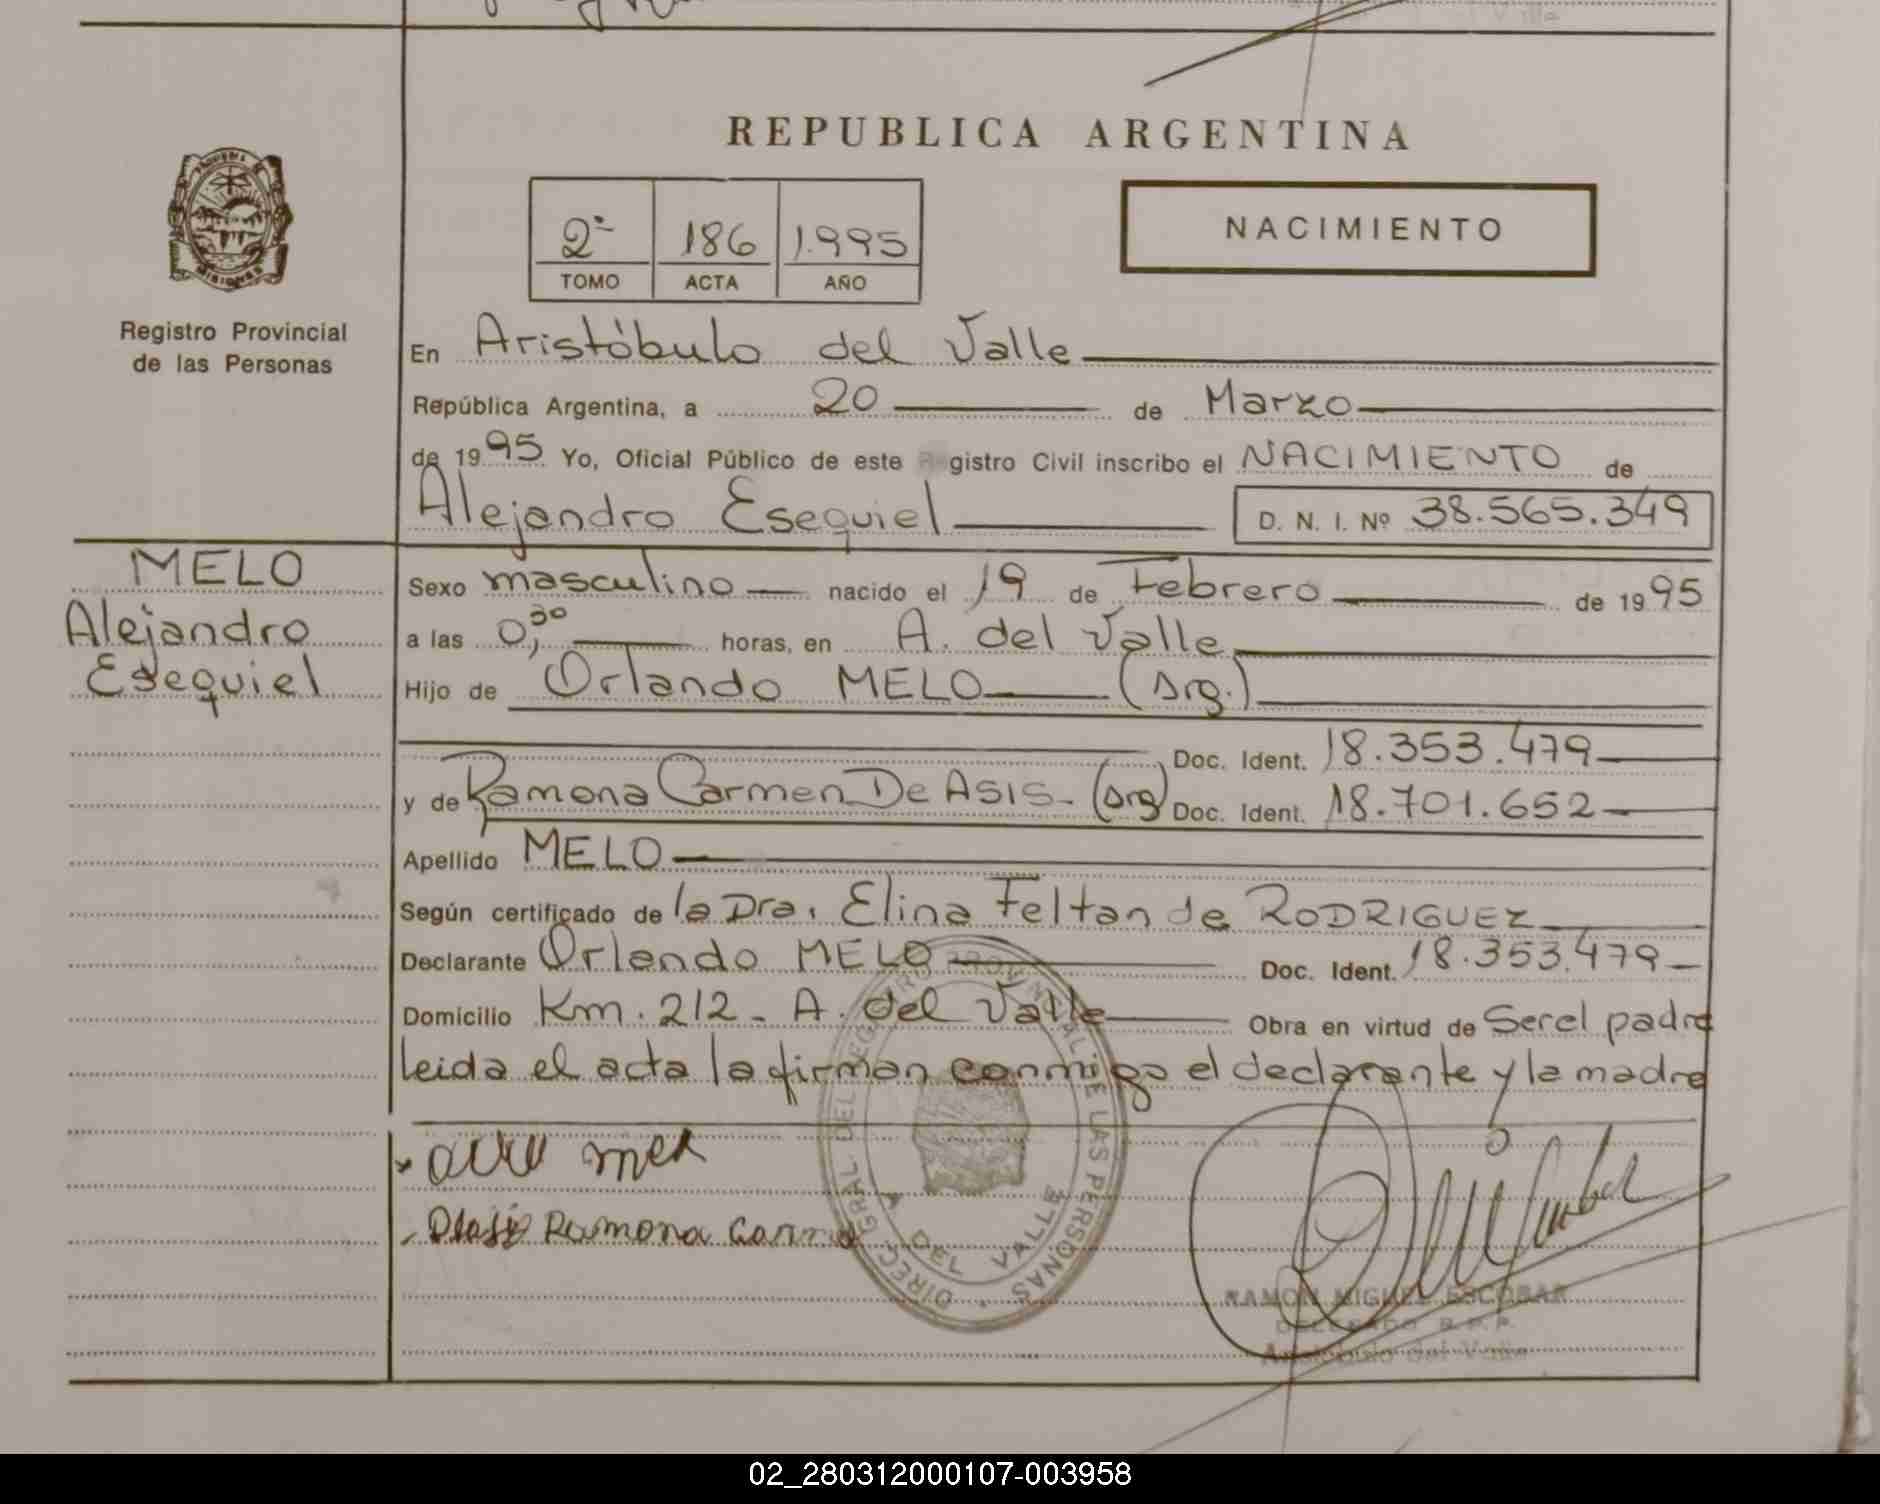 REPUBLICA ARGENTINA
2º 186 1.995
TOMO ACTA AÑO
NACIMIENTO
MISIONES
Registro Provincial
de las Personas
En Aristóbulo del Valle
República Argentina, a 20 de Marzo
de 1995 Yo, Oficial Público de este Registro Civil inscribo el NACIMIENTO de
Alejandro Esequiel D. N. I. Nº 38.565.349
MELO
Alejandro
Esequiel
Sexo masculino nacido el 19 de Febrero de 1995
a las 0,30 horas, en A. del Valle
Hijo de Orlando MELO (Arg.)
Doc. Ident. 18.353.479
y de Ramona Carmen De ASIS- (Arg) Doc. Ident. 18.701.652
Apellido MELO
Según certificado de la Dra. Elina Feltan de RODRIGUEZ
Declarante Orlando MELO Doc. Ident. 18.353.479
Domicilio Km. 212 - A. del Valle Obra en virtud de Ser el padre
leida el acta la firman conmigo el declarante y la madre
Ramona Carme
DIRECC. GRAL. DEL REGISTRO PROVINCIAL DE LAS PERSONAS
A DEL VALLE
RAMON MIGUEL ESCOBAR
DELEGADO R. P. P.
Aristóbulo del Valle
02_280312000107-003958